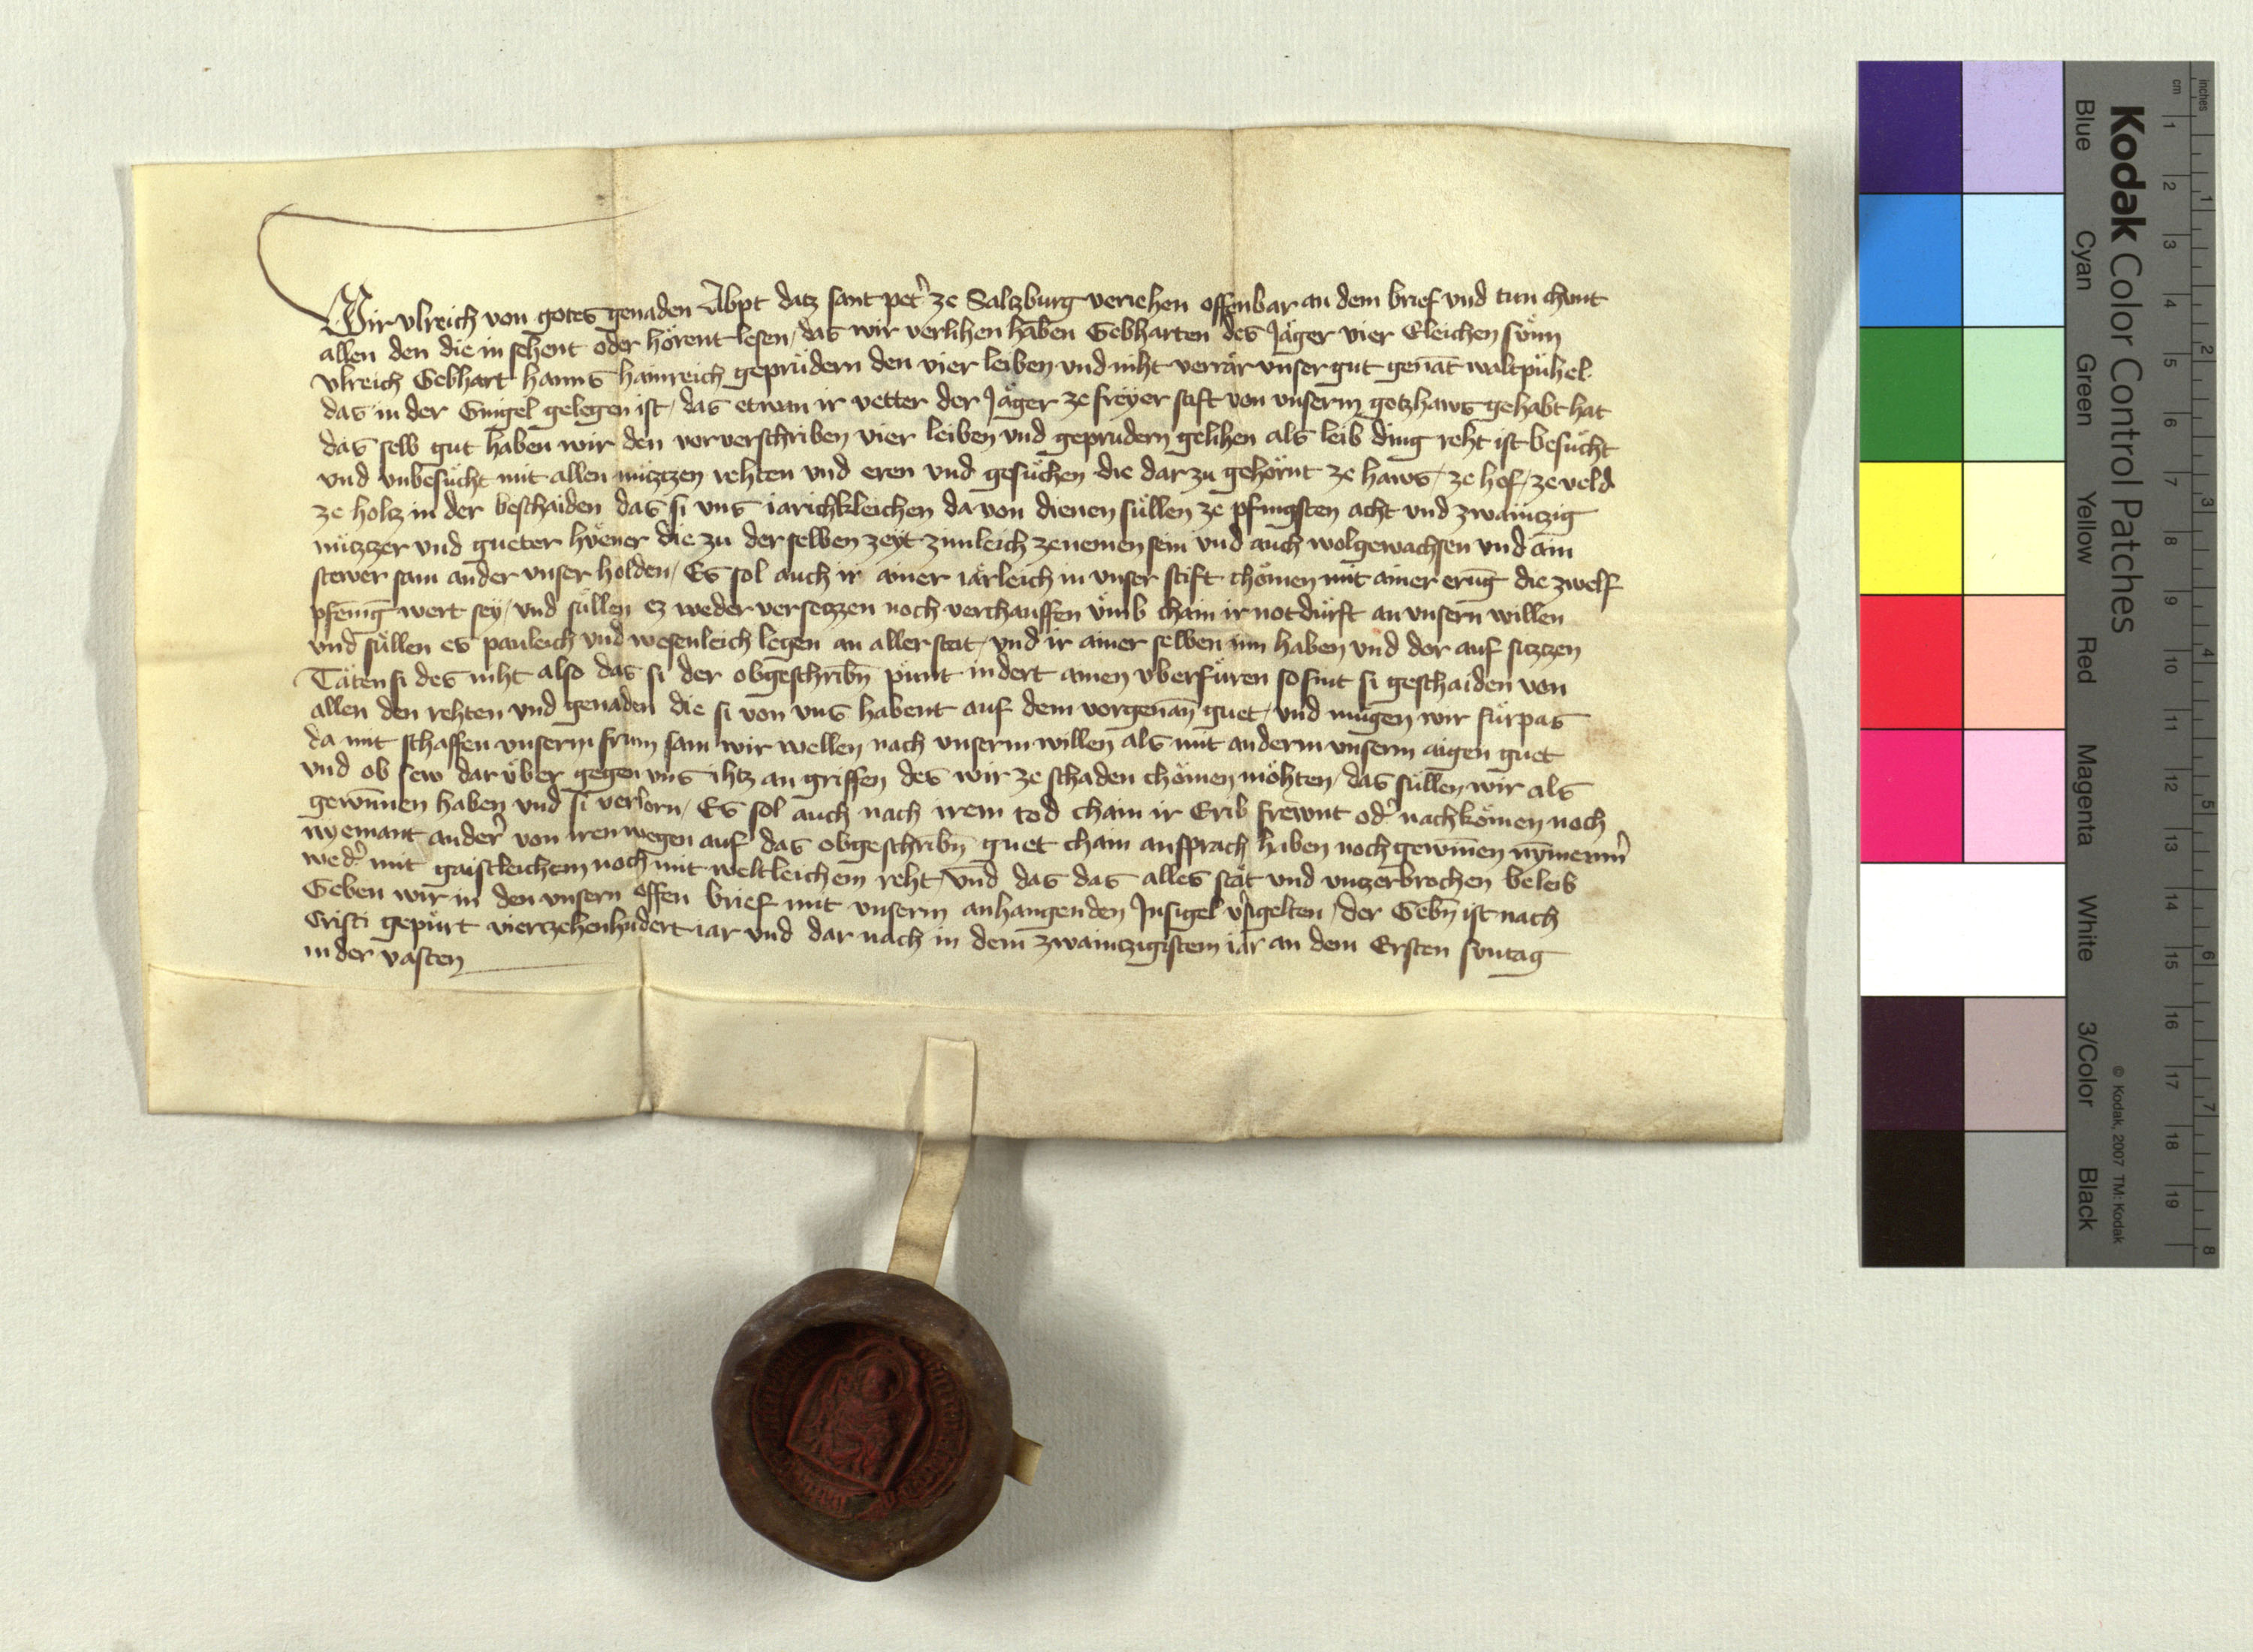 Wir vlreich von gotes genaden Abpt datz sant pet͛ ze Saltzburg veriehen offenbar an dem brief vnd tun chunt
allen den die in sehent oder hörent lesen / das wir verlihen haben Gebharten des Jäger vier Eleichen sönn
vlreich Gebhart hanns hainreich geprüdern den vier leiben vnd niht verrär vnser gut genāt waltpühel
das in der Gnigel gelegen ist / das etwan ir vetter der Jäger ze freyer stift von vnserm gotzhaws gehabt hat
das selb gut haben wir den vorverschriben vier leiben vnd geprüdern gelihen als leib ding reht ist besücht
vnd vnbesücht mit allen nützzen rehten vnd eren vnd gesüchen die dar zu gehörnt ze haws / ze hof / ze veld
ze holtz in der beschaiden das si vns iarichkleichen da von dienen süllen ze pfingsten acht vnd zwaintzig
nützzer vnd gueter hüener die zu der selben zeyt zimleich ze nemen sein vnd auch wolgewachsen vnd ain
stewer sam ander vnser holden / Es sol auch ir ainer iärleich in vnser stift chömen mit ainer erūg die zwelf
pfēnig wert sey / vnd süllen ez weder versetzzen noch verchauffen vmb chain ir notdürft an vnsern willen
vnd süllen es pauleich vnd wesenleich legen an aller stat / vnd ir ainer selben inn haben vnd dor auf sitzzen
Täten si des niht also das si der obgeschribn̄ punt indert ainen vberfüren so sint si geschaiden von
allen den rehten vnd genaden die si von vns habent auf dem vorgenan̄ guet / vnd mügen wir fürpas
da mit schaffen vnserm frum sam wir wellen nach vnserm willen als mit anderm vnserm aigen guet
vnd ob sew dar über gegen vns ihtz an griffen des wir ze schaden chömen möhten / das süllen wir als
gewūnen haben vnd si verlorn / Es sol auch nach irem tod chain ir Erib frewnt od͛ nachkömen noch
nyemant ander͛ von iren wegen auf das obgeschribn̄ guet chain ansprach haben noch gewīnen nȳmerm͛
wed͛ mit gaistleichem noch mit weltleichem reht / vnd das das alles stät vnd vnzerbrochen beleib
Geben wir in den vnsern offen brief mit vnserm anhangenden Jnsigel v͛sigelten / der Gebn̄ ist nach
Cristi gepürt vierczehenhūdert iar vnd dar nach in dem zwaintzigistem iar an dem Ersten suntag
in der vasten
Kodak Color Control Patches
Blue Cyan Green Yellow Red Magenta White 3/Color Black
© Kodak, 2007 TM: Kodak
inches 1 2 3 4 5 6 7 8
cm 1 2 3 4 5 6 7 8 9 10 11 12 13 14 15 16 17 18 19